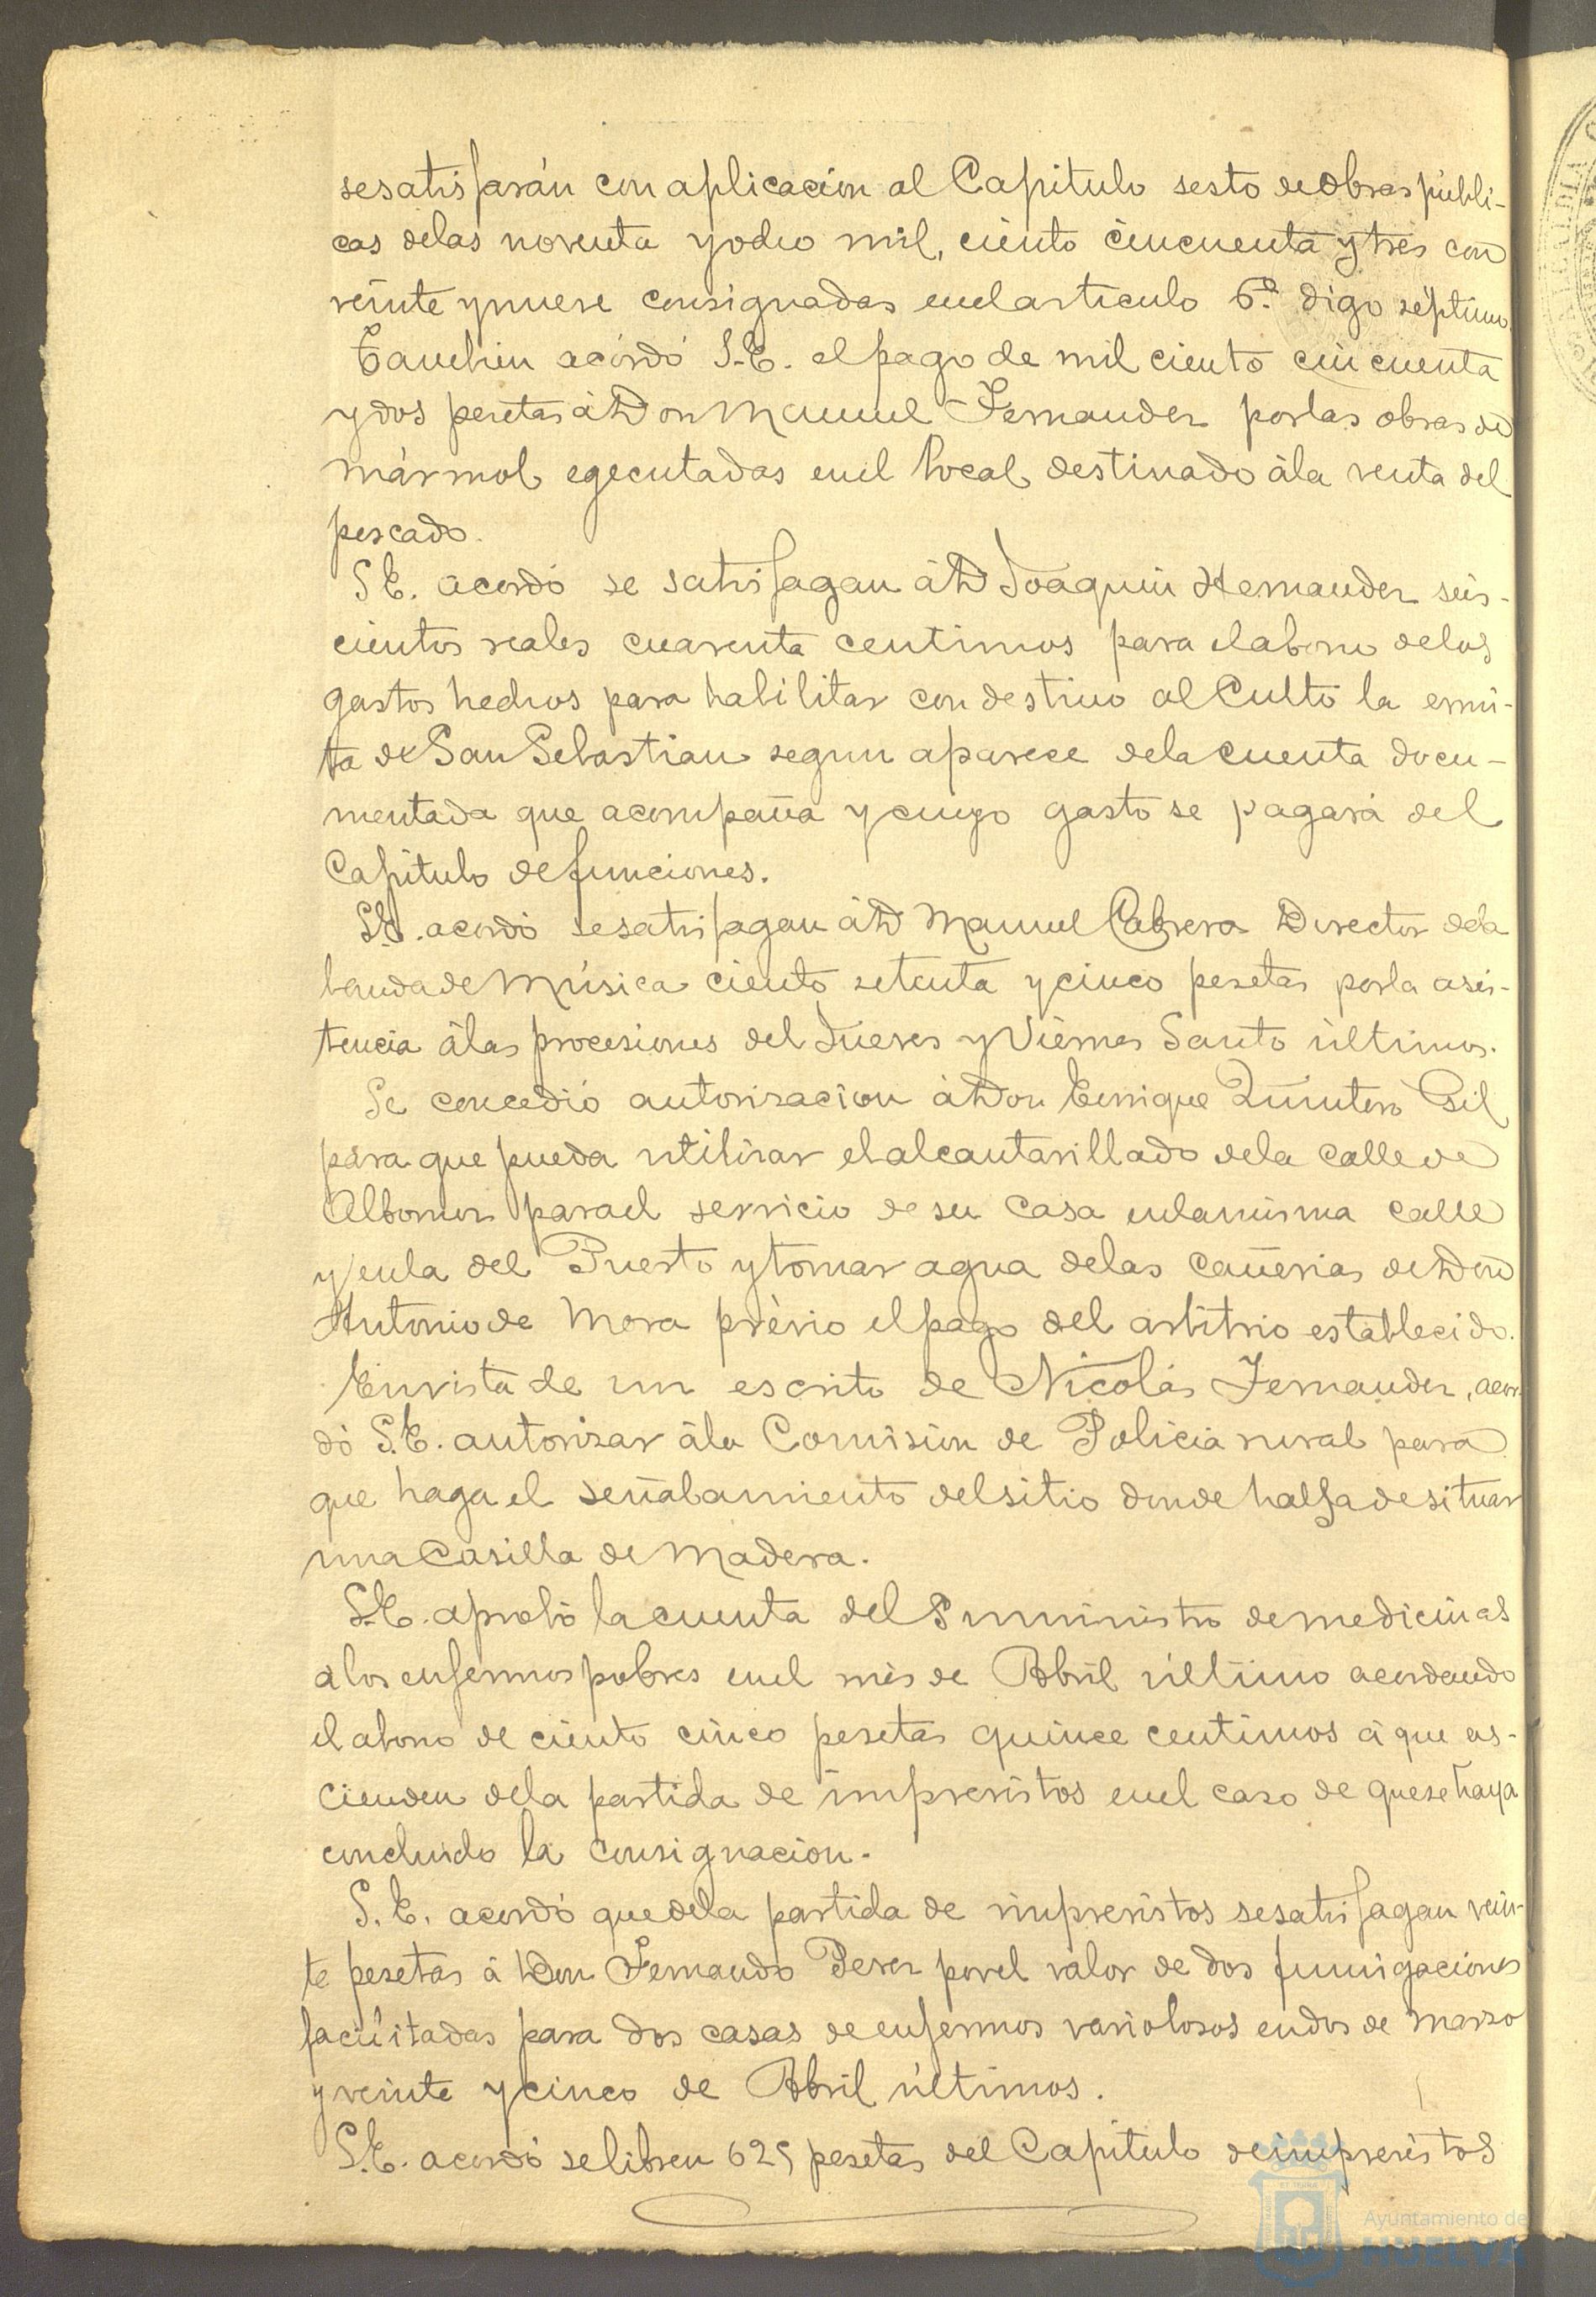 se satisfarán con aplicacion al Capitulo sesto de Obras públi-
cas de las noventa y ocho mil, ciento cincuenta y tres con
veinte y nueve consignadas en el articulo 6.º digo séptimo.
Tambien acordó S.E. el pago de mil ciento cincuenta
y dos pesetas á Don Manuel Fernandez por las obras de
mármol egecutadas en el local destinado á la venta del
pescado.
S.E. acordó se satisfagan á D Joaquin Hernandez seis-
cientos reales cuarenta centimos para el abono de los
gastos hechos para habilitar con destino al Culto la ermi-
ta de San Sebastian segun aparece de la cuenta docu-
mentada que acompaña y cuyo gasto se pagará del
Capitulo de funciones.
S.E. acordó se satisfagan á D Manuel Cabrera Director de la
banda de Música ciento setenta y cinco pesetas por la asis-
tencia á las procesiones del Jueves y Viernes Santo últimos.
Se concedió autorizacion á Don Enrique Quintero Gil
para que pueda utilizar el alcantarillado de la calle de
Albornoz para el servicio de su casa en la misma calle
y en la del Puerto y tomar agua de las cañerias de Don
Antonio de Mora prévio el pago del arbitrio establecido.
En vista de un escrito de Nicolás Fernandez, acor-
dó S.E. autorizar á la Comision de Policia rural para
que haga el señalamiento del sitio donde halla de situar
una Casilla de Madera.
S.E. aprobó la cuenta del Suministro de medicinas
a los enfermos pobres en el mes de Abril último acordando
el abono de ciento cinco pesetas quince centimos á que as-
cienden de la partida de imprevistos en el caso de que se haya
concluido la consignacion.
S.E. acordó que de la partida de imprevistos se satisfagan vein-
te pesetas á Don Fernando Perez por el valor de dos fumigaciones
facilitadas para dos casas de enfermos variolosos en dos de marzo
y veinte y cinco de Abril últimos.
S.E. acordó se libren 625 pesetas del Capitulo de imprevistos
Ayuntamiento de
HUELVA